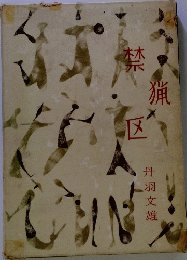 禁猟区
丹羽文雄